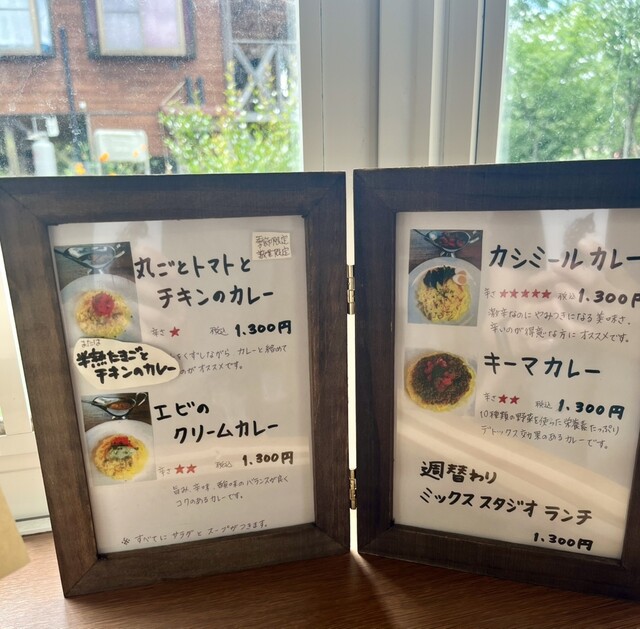 季節限定
数量限定
丸ごとトマトと
チキンのカレー
辛さ ★ 税込 1.300円
または
半熟たまごと
チキンのカレー
くずしながら カレーと絡めて
のが オススメです。
エビの
クリームカレー
辛さ ★★ 税込 1.300円
旨み、辛味、酸味のバランスが良く
コクのあるカレーです。
※ すべてに サラダと スープがつきます。
カシミールカレー
辛さ ★★★★★ 税込 1.300円
激辛なのに やみつきになる美味さ。
辛いのが得意な方に オススメです。
キーマカレー
辛さ ★★ 税込 1.300円
10種類の野菜を使った栄養素たっぷり
デトックス効果のあるカレーです。
週替わり
ミックス スタジオ ランチ
1.300円